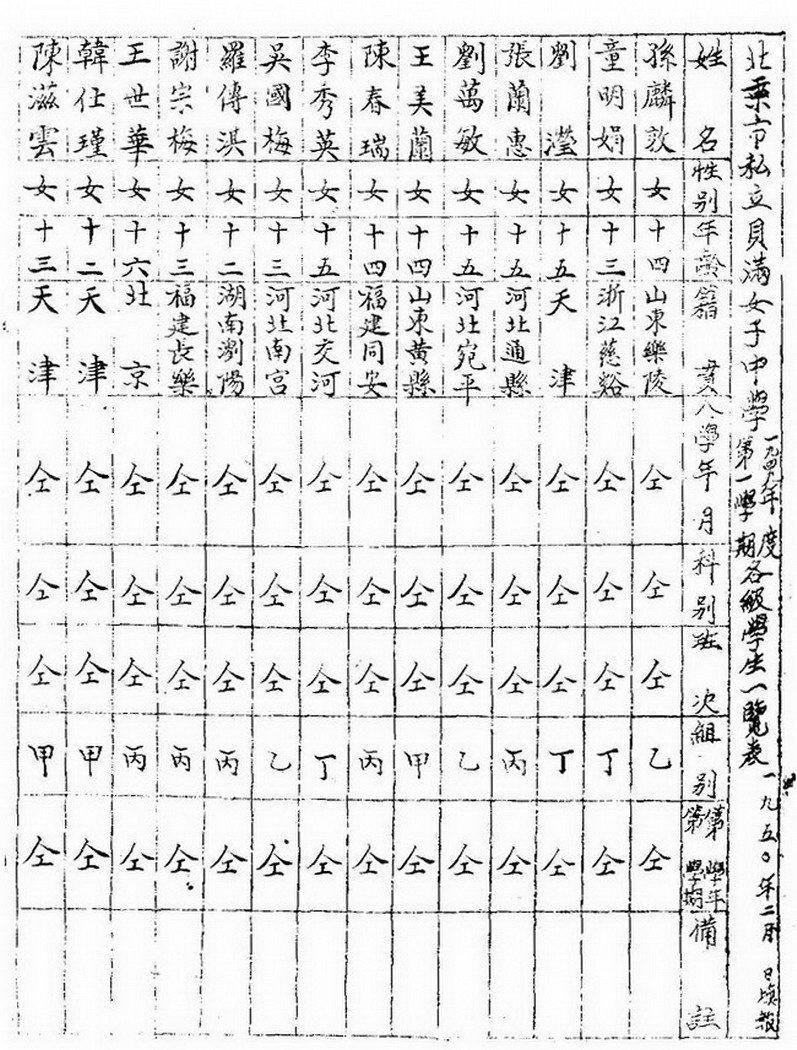 北京市私立貝滿女子中學一九四九年度第一學期各級學生一覽表 一九五〇年二月 日填報
姓名 性别 年齡 籍貫 入學年月 科别 班次 組别 第 學年第 學期 備註
孫麟敦 女 十四 山東樂陵 仝 仝 仝 乙 仝
童明娟 女 十三 浙江慈谿 仝 仝 仝 丁 仝
劉瀅 女 十五 天津 仝 仝 仝 丁 仝
張蘭惠 女 十五 河北通縣 仝 仝 仝 丙 仝
劉萬敏 女 十五 河北宛平 仝 仝 仝 乙 仝
王美蘭 女 十四 山東黄縣 仝 仝 仝 甲 仝
陳春瑞 女 十四 福建同安 仝 仝 仝 丙 仝
李秀英 女 十五 河北交河 仝 仝 仝 丁 仝
吳國梅 女 十三 河北南宫 仝 仝 仝 乙 仝
羅傳淇 女 十二 湖南瀏陽 仝 仝 仝 丙 仝
謝宗梅 女 十三 福建長樂 仝 仝 仝 丙 仝
王世華 女 十六 北京 仝 仝 仝 丙 仝
韓仕瑾 女 十二 天津 仝 仝 仝 甲 仝
陳滋雲 女 十三 天津 仝 仝 仝 甲 仝